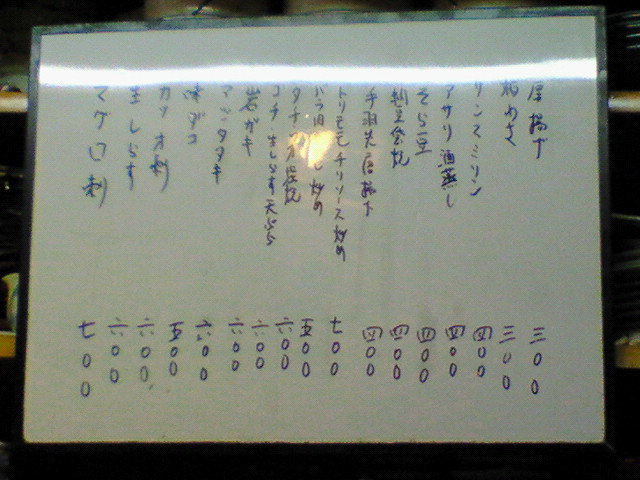 厚揚げ 三〇〇
板わさ 三〇〇
リンスミリン 四〇〇
アサリ酒蒸し 四〇〇
そら豆 四〇〇
四〇〇
手羽先唐揚げ 四〇〇
トリモモチリソース炒め 七〇〇
バラ肉 炒め 五〇〇
タチ 焼 六〇〇
コチ 生しらす天ぷら 六〇〇
岩ガキ 六〇〇
マダタタキ 六〇〇
味ダコ 五〇〇
カツオ刺 六〇〇
生しらす 六〇〇
マグロ刺 七〇〇